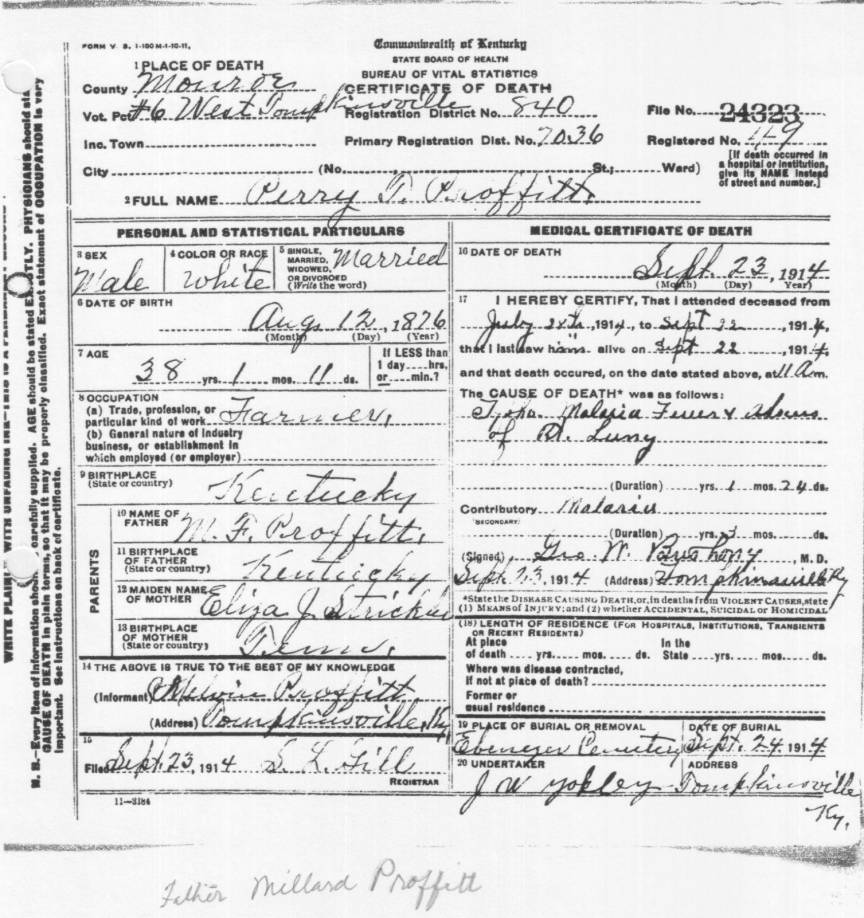 FORM V. S. 1-100 M-1-10-11.
Commonwealth of Kentucky
STATE BOARD OF HEALTH
BUREAU OF VITAL STATISTICS
CERTIFICATE OF DEATH
1 PLACE OF DEATH
County Monroe
Vot. Pct #6 West Tompkinsville
Registration District No. 840
File No. 24323
Inc. Town
Primary Registration Dist. No. 7036
Registered No. 119
[If death occurred in
a hospital or institution,
give its NAME instead
of street and number.]
City (No. St.; Ward)
2 FULL NAME Perry T. Proffitt
PERSONAL AND STATISTICAL PARTICULARS
3 SEX
Male
4 COLOR OR RACE
White
5 SINGLE,
MARRIED,
WIDOWED,
OR DIVORCED
(Write the word)
Married
6 DATE OF BIRTH
Aug 12, 1876
(Month) (Day) (Year)
7 AGE
38 yrs. 1 mos. 11 ds.
If LESS than
1 day hrs.
or min.?
8 OCCUPATION
(a) Trade, profession, or
particular kind of work Farmer
(b) General nature of industry
business, or establishment in
which employed (or employer)
9 BIRTHPLACE
(State or country)
Kentucky
PARENTS
10 NAME OF
FATHER
M. F. Proffitt
11 BIRTHPLACE
OF FATHER
(State or country)
Kentucky
12 MAIDEN NAME
OF MOTHER
Eliza J.
13 BIRTHPLACE
OF MOTHER
(State or country)
Tenn.
14 THE ABOVE IS TRUE TO THE BEST OF MY KNOWLEDGE
(Informant) Melvin Proffitt
(Address) Tompkinsville, Ky
15
Filed Sept. 23, 1914 S. L. Gill
REGISTRAR
11—3184
MEDICAL CERTIFICATE OF DEATH
16 DATE OF DEATH
Sept. 23, 1914
(Month) (Day) (Year)
17 I HEREBY CERTIFY, That I attended deceased from
July 1914, to Sept 22, 1914,
that I last saw him alive on Sept 22, 1914,
and that death occured, on the date stated above, at 11 Am.
The CAUSE OF DEATH* was as follows:
Typho Malaria Fever &
of Lung
(Duration) yrs. 1 mos. 24 ds.
Contributory Malaria
(SECONDARY)
(Duration) yrs. 3 mos. ds.
(Signed) Geo. W. Bushong, M. D.
Sept. 23, 1914 (Address) Tompkinsville Ky
*State the DISEASE CAUSING DEATH, or, in deaths from VIOLENT CAUSES, state
(1) MEANS OF INJURY; and (2) whether ACCIDENTAL, SUICIDAL or HOMICIDAL
(18) LENGTH OF RESIDENCE (FOR HOSPITALS, INSTITUTIONS, TRANSIENTS
OR RECENT RESIDENTS)
At place
of death yrs. mos. ds.
In the
State yrs. mos. ds.
Where was disease contracted,
if not at place of death?
Former or
usual residence
19 PLACE OF BURIAL OR REMOVAL
Ebenezer Cemetery
DATE OF BURIAL
Sept. 24 1914
20 UNDERTAKER
J W Yokley
ADDRESS
Tompkinsville
Ky.
WRITE PLAINLY WITH UNFADING INK—THIS IS A PERMANENT
N. B.—Every item of information should carefully supplied. AGE should be stated EXACTLY. PHYSICIANS should sta
CAUSE OF DEATH in plain terms, so that it may be properly classified. Exact statement of OCCUPATION is very
important. See instructions on back of certificate.
Father Millard Proffitt